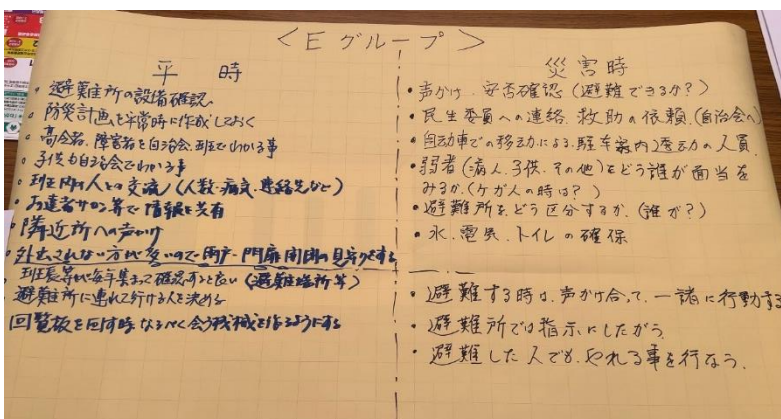 <Eグループ>
平時
・避難所の設備確認
・防災計画を平常時に作成しておく
・高令者、障害者を自治会、班でわかる事
・子供も自治会でわかる事
・班内の人との交流(人数・病気、連絡先など)
・お達者サロン等で情報を共有
・隣近所への声かけ
・外出されない方が多いので雨戸・門扉開閉の見守りをする
班長等が毎年集まって確認すると良い(避難場所等)
避難所に連れて行ける人を決める
回覧板を回す時なるべく会う機械を作るようにする
災害時
・声かけ 安否確認(避難できるか?)
・民生委員への連絡、救助の依頼(自治会へ)
・自動車での移動による、駐車案内、移動の人員
・弱者(病人、子供、その他)をどう誰が面当を
みるか(ケガ人の時は?)
・避難所をどう区分するか、(誰が?)
・水、電気、トイレの確保
・避難する時は、声かけ合って、一諸に行動する
・避難所では指示にしたがう
・避難した人でも、やれる事を行なう。